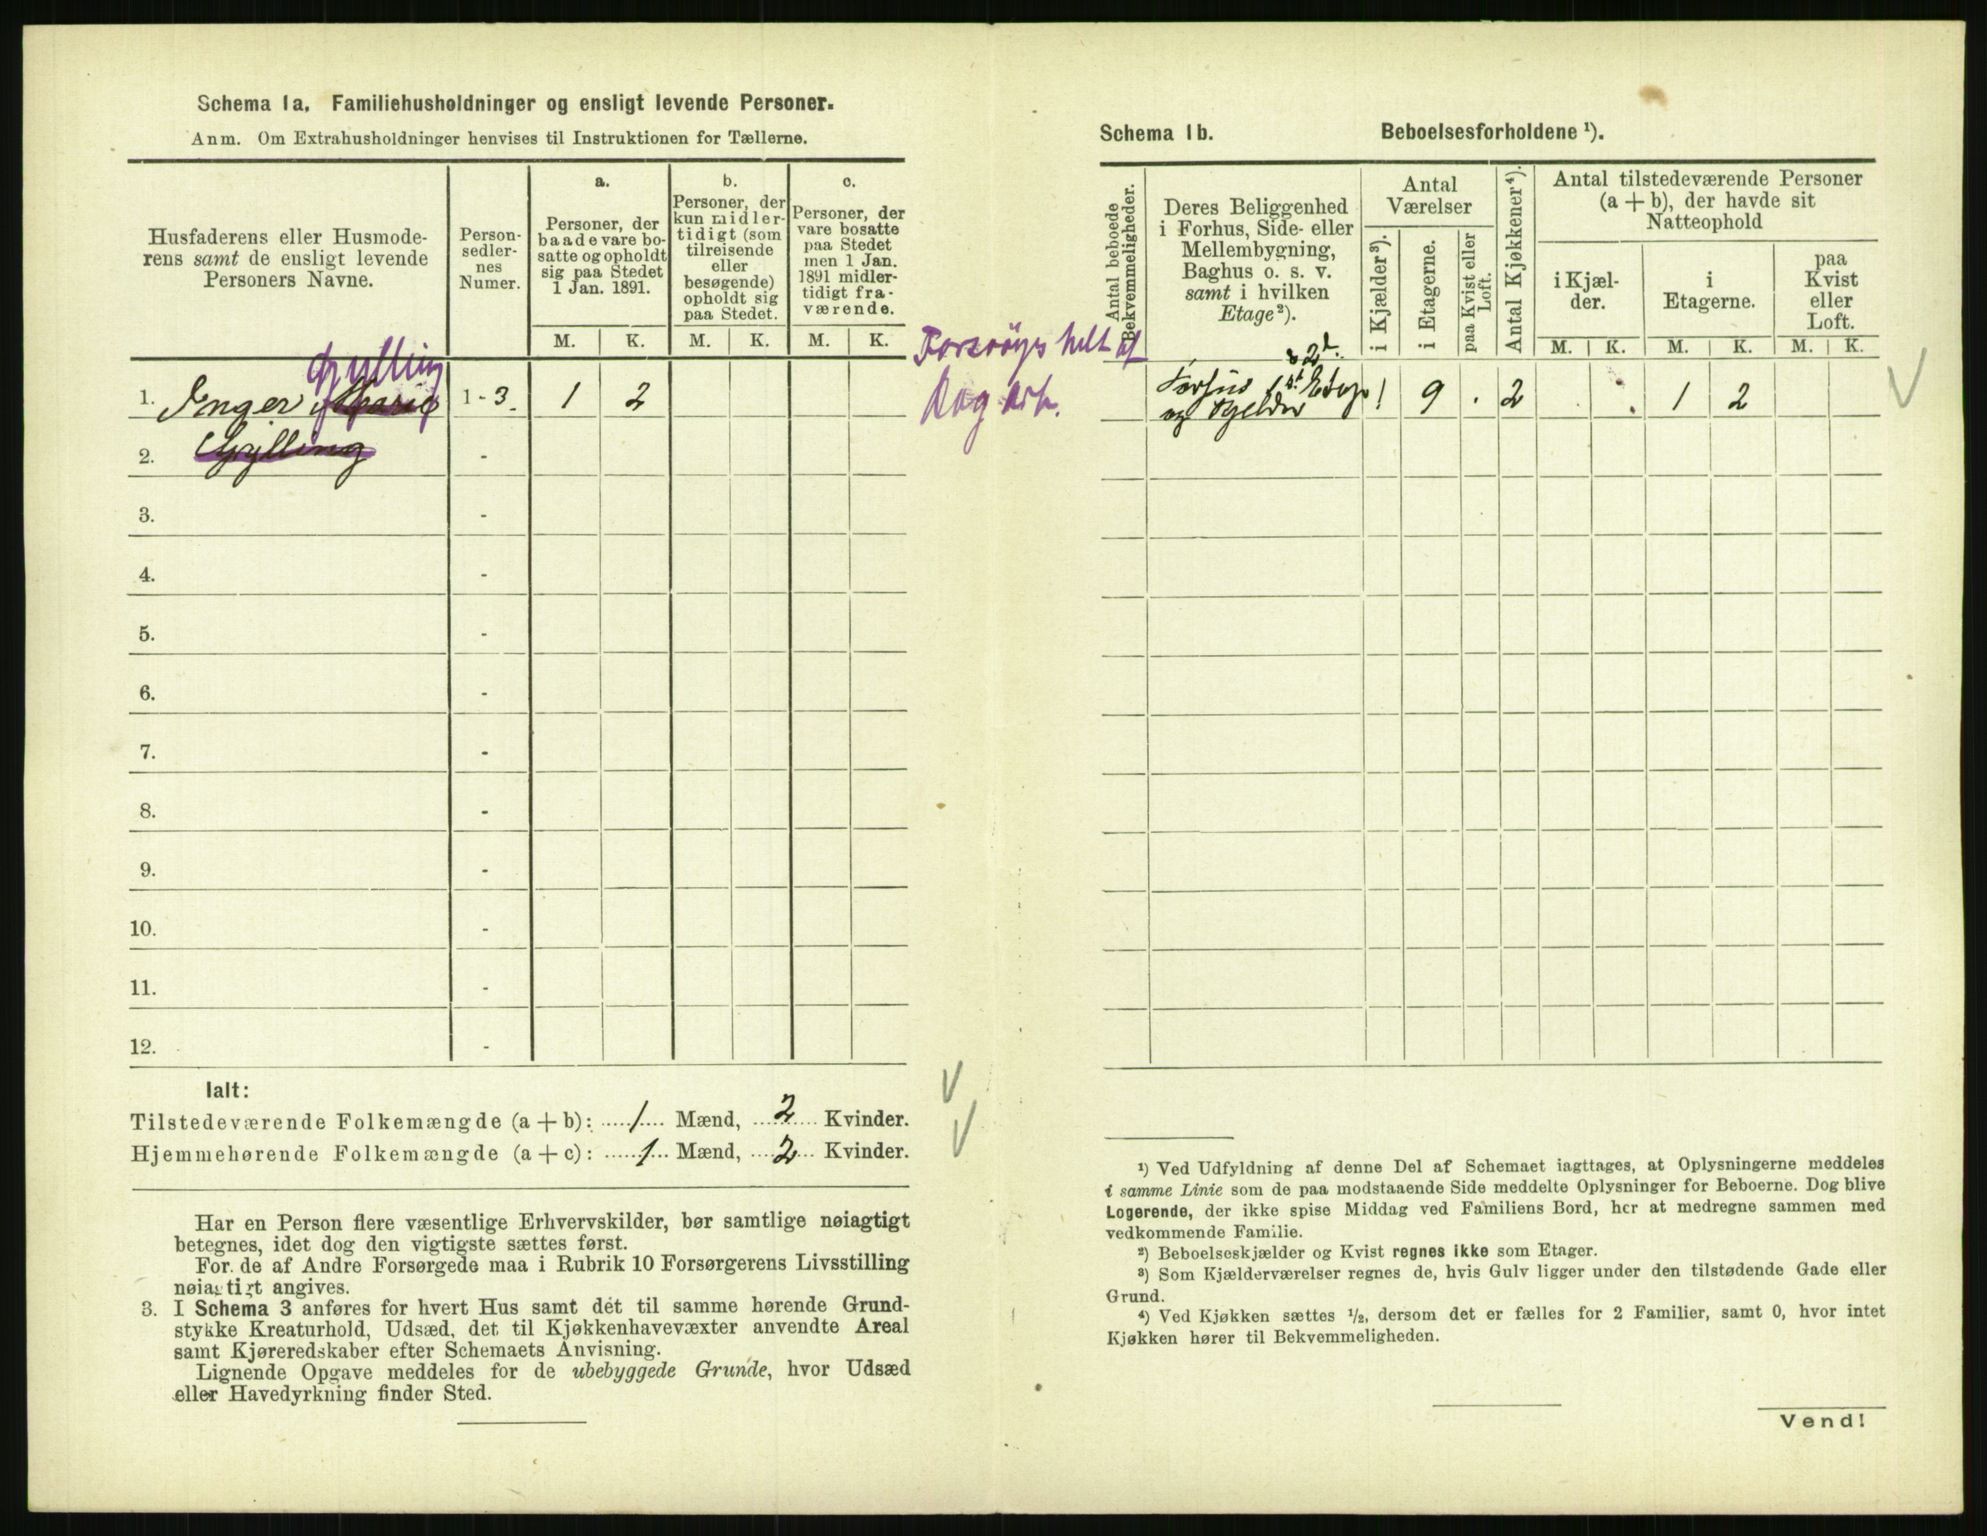 Schema 1a. Familiehusholdninger og ensligt levende Personer.
Anm. Om Extrahusholdninger henvises til Instruktionen for Tællerne.
Husfaderens eller Husmode-
rens samt de ensligt levende
Personers Navne.
Person-
sedler-
nes
Numer.
a.
Personer, der
baade vare bo-
satte og opholdt
sig paa Stedet
1 Jan. 1891.
b.
Personer, der
kun midler-
tidigt (som
tilreisende
eller
besøgende)
opholdt sig
paa Stedet.
c.
Personer, der
vare bosatte
paa Stedet
men 1 Jan.
1891 midler-
tidigt fra-
værende.
M. K. M. K. M. K.
Gylling
1. Inger Marie 1-3. 1 2
2. Gylling -
3. -
4. -
5. -
6. -
7. -
8. -
9. -
10. -
11. -
12. -
Ialt:
Tilstedeværende Folkemængde (a + b): 1 Mænd, 2 Kvinder.
Hjemmehørende Folkemængde (a + c): 1 Mænd, 2 Kvinder.
Har en Person flere væsentlige Erhvervskilder, bør samtlige nøiagtigt
betegnes, idet dog den vigtigste sættes først.
For de af Andre Forsørgede maa i Rubrik 10 Forsørgerens Livsstilling
nøiagtigt angives.
3. I Schema 3 anføres for hvert Hus samt det til samme hørende Grund-
stykke Kreaturhold, Udsæd, det til Kjøkkenhavevæxter anvendte Areal
samt Kjøreredskaber efter Schemaets Anvisning.
Lignende Opgave meddeles for de ubebyggede Grunde, hvor Udsæd
eller Havedyrkning finder Sted.
Forsørges helt af
Schema 1b. Beboelsesforholdene ¹).
Antal beboede
Bekvemmeligheder.
Deres Beliggenhed
i Forhus, Side- eller
Mellembygning,
Baghus o. s. v.
samt i hvilken
Etage²).
Antal
Værelser
i Kjælder³).
i Etagerne.
paa Kvist eller
Loft.
Antal Kjøkkener⁴).
Antal tilstedeværende Personer
(a + b), der havde sit
Natteophold
i Kjæl-
der.
i
Etagerne.
paa
Kvist
eller
Loft.
M. K. M. K. M. K.
& 2d.
Forhus 1st Etage 1 9 . 2 . . 1 2
og Kjelder
¹) Ved Udfyldning af denne Del af Schemaet iagttages, at Oplysningerne meddeles
i samme Linie som de paa modstaaende Side meddelte Oplysninger for Beboerne. Dog blive
Logerende, der ikke spise Middag ved Familiens Bord, her at medregne sammen med
vedkommende Familie.
²) Beboelseskjælder og Kvist regnes ikke som Etager.
³) Som Kjælderværelser regnes de, hvis Gulv ligger under den tilstødende Gade eller
Grund.
⁴) Ved Kjøkken sættes ½, dersom det er fælles for 2 Familier, samt 0, hvor intet
Kjøkken hører til Bekvemmeligheden.
Vend!